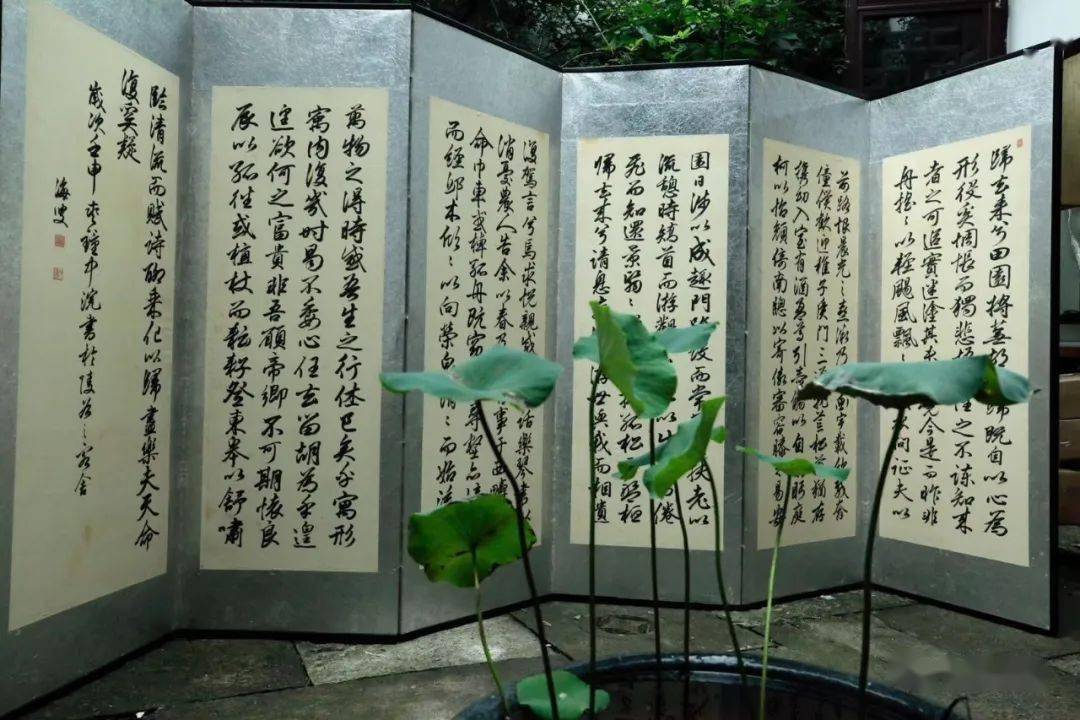 歸去來兮田園將蕪歸既自以心為
形役奚惆悵而獨悲悟往之不諫知來
者之可追實迷塗其未覺今是而昨非
舟搖搖以輕颺風飄飄問征夫以
前路恨晨光之熹微乃載奔
僮僕歡迎稚子候門三松猶存
攜幼入室有酒盈尊引壺觴以自眄庭
柯以怡顏倚南窗以寄傲審容膝易安
園日涉以成趣門設而常扶老以
流憩時矯首而游觀以出倦
飛而知還景翳翳孤松盤桓
歸去來兮請息游世與我而相遺
復駕言兮焉求悅親戚話樂琴書
消憂農人告余以春及事于西疇
命巾車或棹孤舟既窈尋壑亦
而經邱木欣欣以向榮泉涓涓而始流
萬物之得時感吾生之行休已矣乎寓形
寓內復幾時曷不委心任去留胡為乎遑
遑欲何之富貴非吾願帝鄉不可期懷良
辰以孤往或植杖而耘耔登東皋以舒嘯
臨清流而賦詩聊乘化以歸盡樂夫天命
復奚疑
歲次壬申
海叟